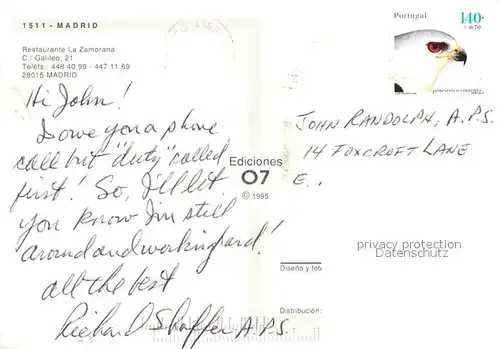 1511 - MADRID
Restaurante La Zamorana
C./ Galileo, 21
Teléfs.: 448 40 99 - 447 11 69
28015 MADRID
Hi John!
I owe you a phone
call but "duty" called
first! So, I'll let
you know I'm still
around and working hard!
all the best
Richard Shaffer A.P.S.
Ediciones
O7
© 1995
Diseño y fot
Distribución:
Portugal
140.
€ 0,70
JOHN RANDOLPH, A.P.S.
14 FOXCROFT LANE
E.
privacy protection
Datenschutz